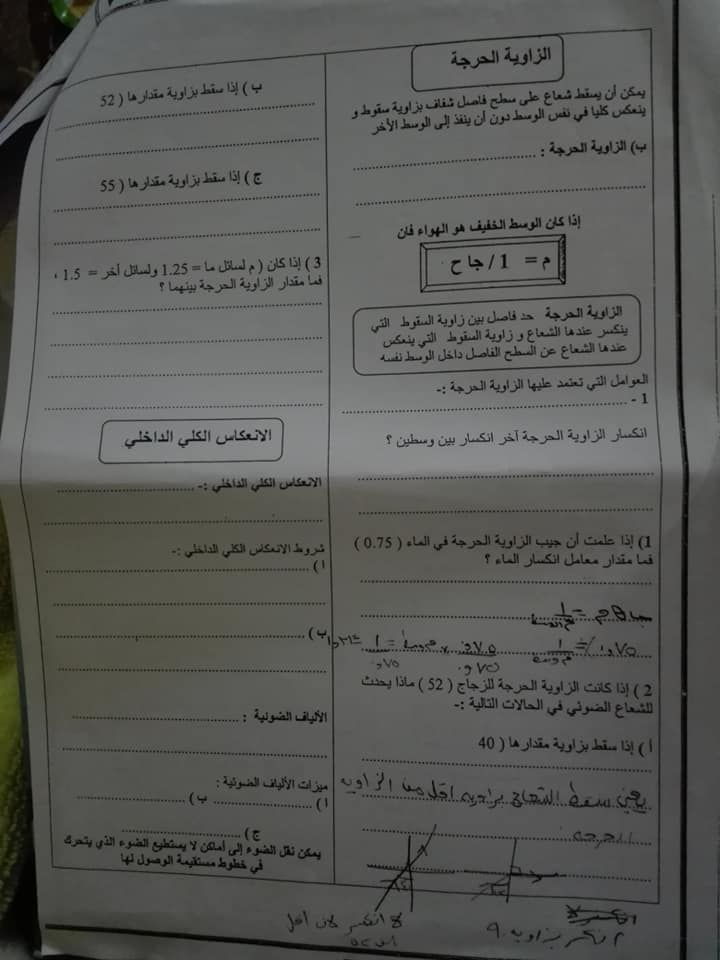 الزاوية الحرجة
يمكن أن يسقط شعاع على سطح فاصل شفاف بزاوية سقوط و
ينعكس كليا في نفس الوسط دون أن ينفذ إلى الوسط الأخر
ب) الزاوية الحرجة :
إذا كان الوسط الخفيف هو الهواء فان
م = 1 / جا ح
الزاوية الحرجة حد فاصل بين زاوية السقوط التي
ينكسر عندها الشعاع و زاوية السقوط التي ينعكس
عندها الشعاع عن السطح الفاصل داخل الوسط نفسه
العوامل التي تعتمد عليها الزاوية الحرجة :-
1 -
انكسار الزاوية الحرجة آخر انكسار بين وسطين ؟
1) إذا علمت أن جيب الزاوية الحرجة في الماء ( 0.75 )
فما مقدار معامل انكسار الماء ؟
2 ) إذا كانت الزاوية الحرجة للزجاج ( 52 ) ماذا يحدث
للشعاع الضوئي في الحالات التالية :-
أ ) إذا سقط بزاوية مقدارها ( 40
يعني سقط الشعاع بزاويه اقل من الزاويه
الحرجه
انكسر بزاويه ٩٠
انكسر لان أقل
ب ) إذا سقط بزاوية مقدارها ( 52
ج ) إذا سقط بزاوية مقدارها ( 55
3 ) إذا كان ( م لسائل ما = 1.25 ولسائل أخر = 1.5 ،
فما مقدار الزاوية الحرجة بينهما ؟
الانعكاس الكلي الداخلي
الانعكاس الكلي الداخلي :-
شروط الانعكاس الكلي الداخلي :-
ا )
ب )
الألياف الضوئية :
ميزات الألياف الضوئية :
ا ) ب )
ج )
يمكن نقل الضوء إلى أماكن لا يستطيع الضوء الذي يتحرك
في خطوط مستقيمة الوصول لها